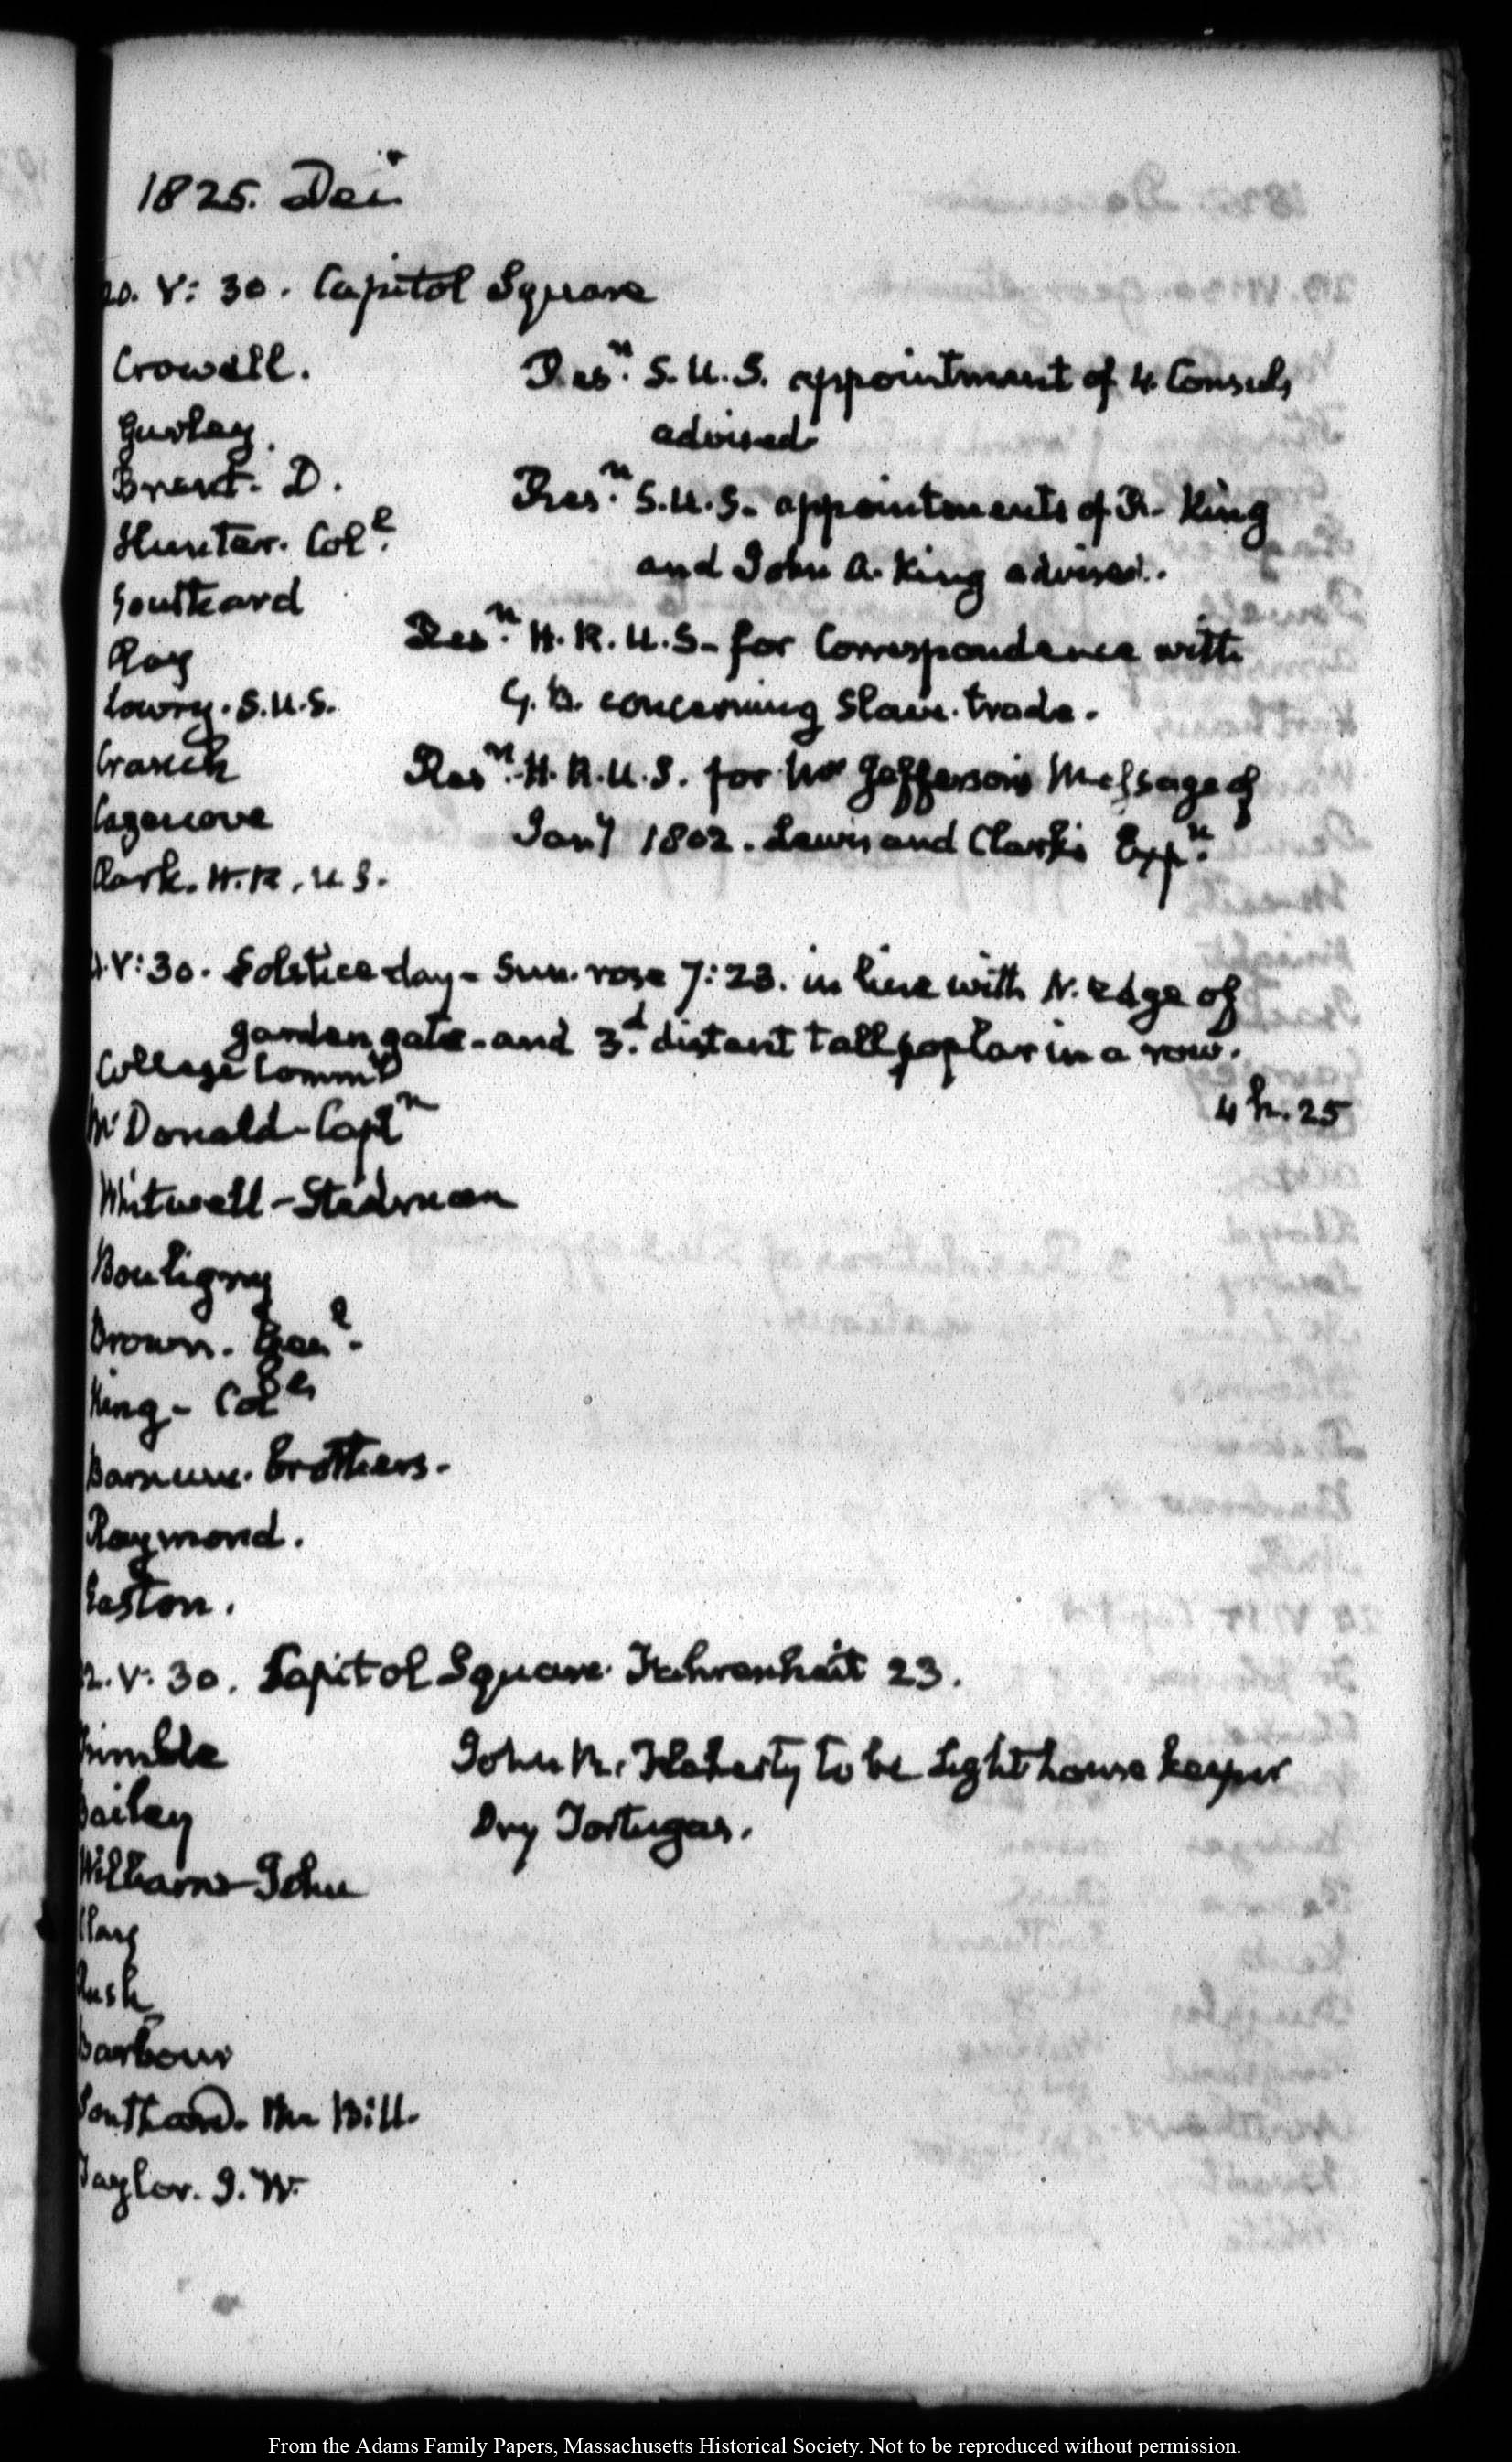 1825. Dec:r
20. V: 30. Capitol Square
Crowell.
Gurley.
Brent. D.
Hunter. Col.l
Southard
Ray
Lowry. S.U.S.
Cranch
Cazenove
Clark. H.R.U.S.
Res.n S.U.S. appointment of 4 Consuls
advised
Res.n S.U.S. appointments of R. King
and John A. King advised.
Res.n H.R.U.S. for Correspondence with
G.B. concerning Slave trade.
Res.n H.R.U.S. for Mr Jefferson's Message of
Jany 1802. Lewis and Clark's Exp.n
21. V: 30. Solstice day - Sun rose 7:23. in line with N. edge of
garden gate - and 3.d distant tall poplar in a row.
4 h. 25
College Comm
McDonald - Capt.n
Whitwell - Stedman
Bouligny
Brown. Gen.l
King - Col
Barnum. Brothers.
Raymond.
Easton.
22. V: 30. Capitol Square. Fahrenheit 23.
Trimble
Bailey
Williams - John
Clay
Rush
Barbour
Southard. Mr Bill.
Taylor. J. W.
John R. Flaherty to be Light house keeper
Dry Tortugas.
From the Adams Family Papers, Massachusetts Historical Society. Not to be reproduced without permission.